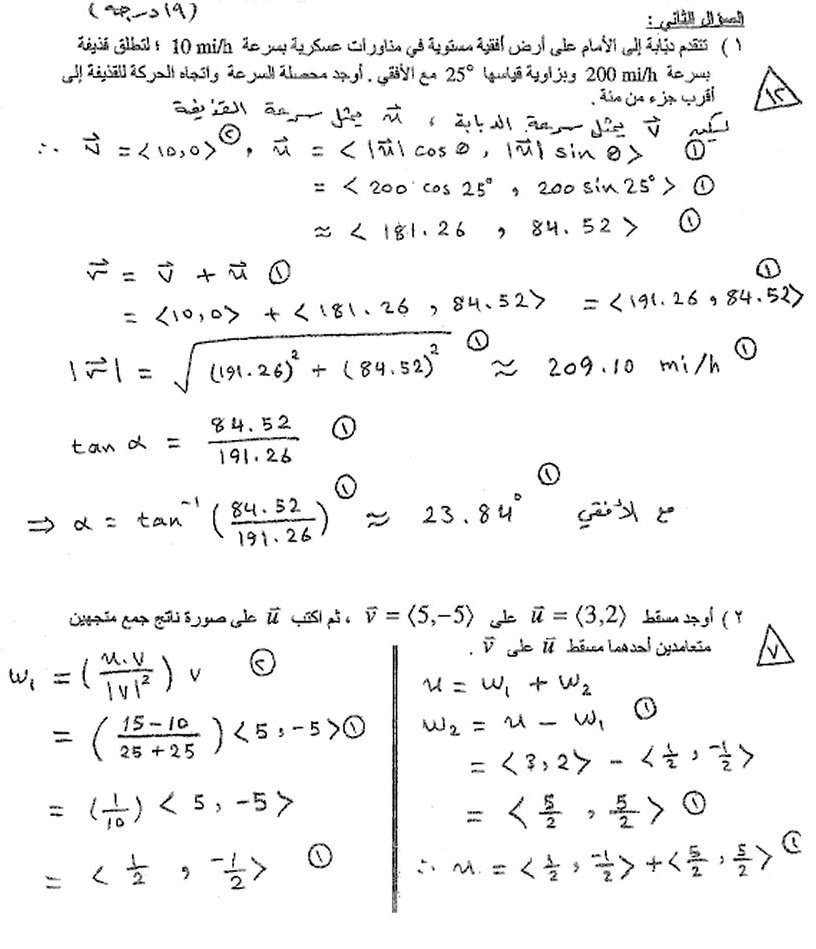 (١٩ درجة)
السؤال الثاني :
١ ) تتقدم دبابة إلى الأمام على أرض أفقية مستوية في مناورات عسكرية بسرعة 10 mi/h ؛ لتطلق قذيفة
بسرعة 200 mi/h وبزاوية قياسها 25° مع الأفقي . أوجد محصلة السرعة واتجاه الحركة للقذيفة إلى
أقرب جزء من مئة .
١٢
ليكن v⃗ يمثل سرعة الدبابة ، u⃗ يمثل سرعة القذيفة
∴ v⃗ = <10,0> ② , u⃗ = < |u⃗| cos θ , |u⃗| sin θ > ①
= < 200 cos 25° , 200 sin 25° > ①
≈ < 181.26 , 84.52 > ①
r⃗ = v⃗ + u⃗ ①
= <10,0> + <181.26 , 84.52> = <191.26 , 84.52> ①
|r⃗| = √((191.26)² + (84.52)²) ① ≈ 209.10 mi/h ①
tan α = 84.52/191.26 ①
⇒ α = tan⁻¹ (84.52/191.26) ① ≈ 23.84° ① مع الأفقي
٢ ) أوجد مسقط u⃗ = ⟨3,2⟩ على v⃗ = ⟨5,−5⟩ ، ثم اكتب u⃗ على صورة ناتج جمع متجهين
متعامدين أحدهما مسقط u⃗ على v⃗ .
٧
u = w₁ + w₂
w₂ = u − w₁ ①
= <3,2> − <1/2 , −1/2>
= < 5/2 , 5/2 > ①
∴ u = <1/2 , −1/2> + <5/2 , 5/2> ①
w₁ = (u.v/|v|²) v ②
= (15−10/25+25) <5 , −5> ①
= (1/10) < 5 , −5 >
= < 1/2 , −1/2 > ①